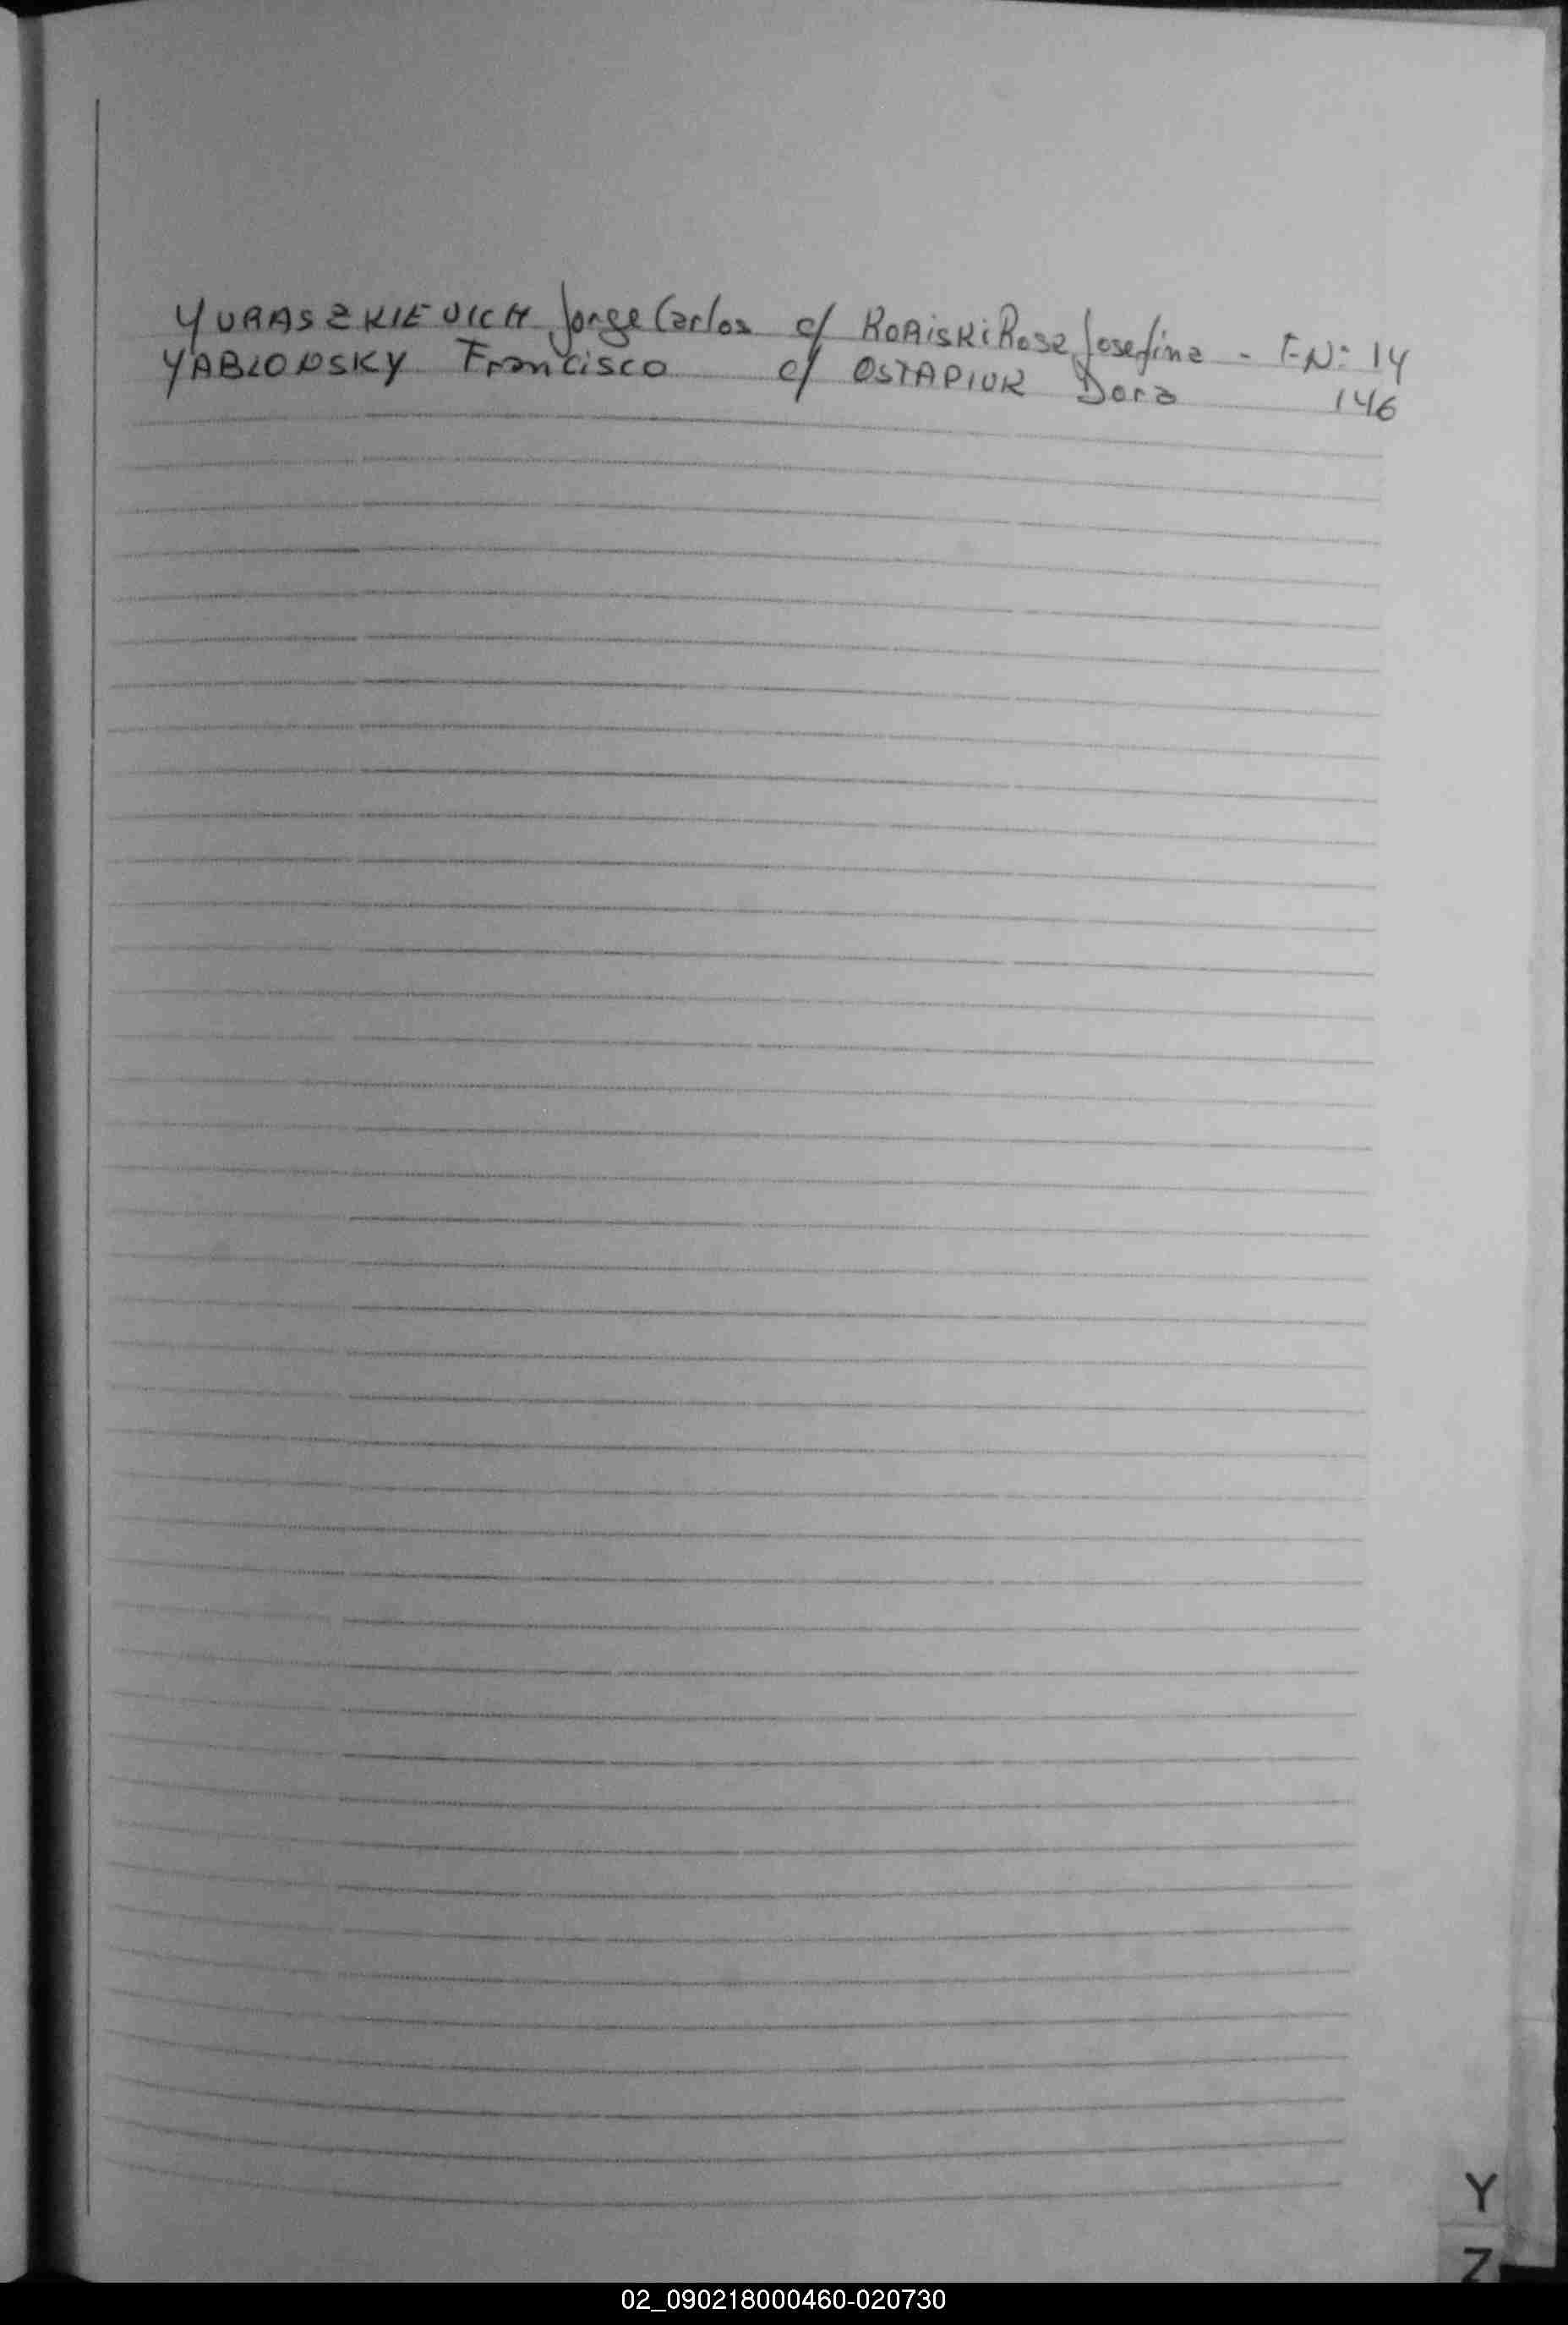 YURASZKIEVICH Jorge Carlos c/ KORISKI Rosa Josefina - F-Nº: 14
YABLONSKY Francisco c/ OSTAPIUK Dora 146
Y
Z
02_090218000460-020730